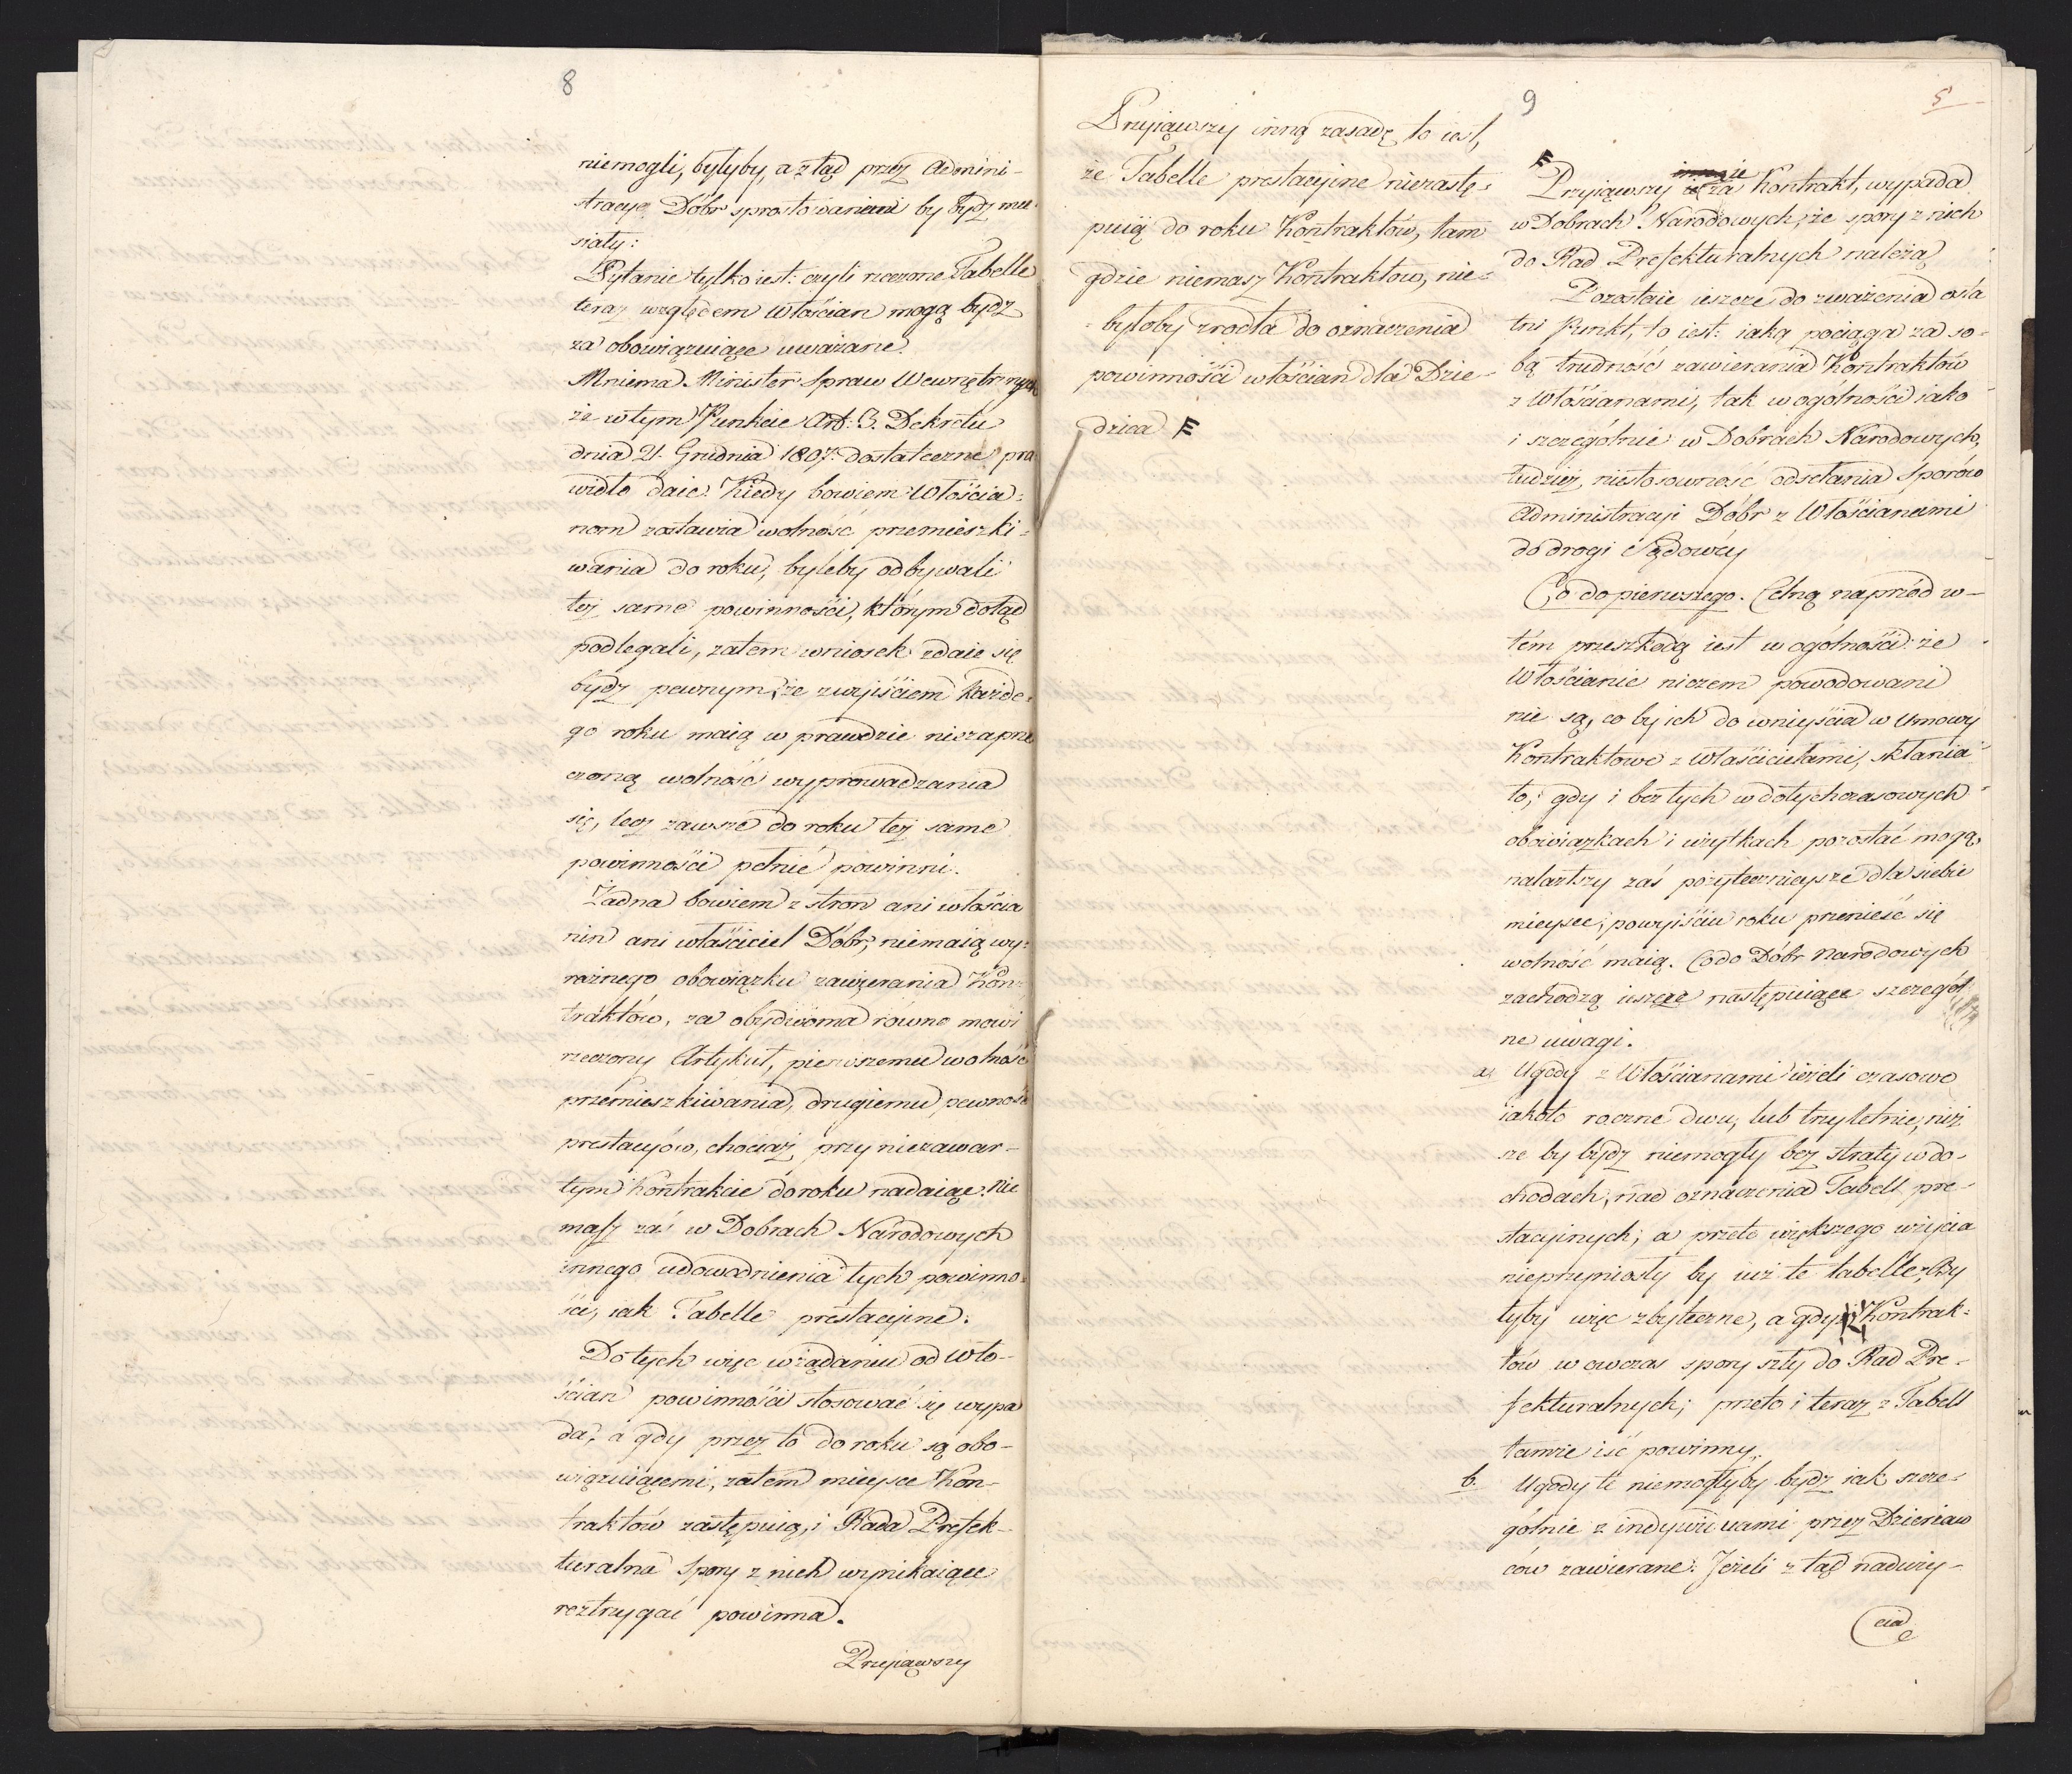 8
niemogli, byłyby, a ztąd przez Admini-
stracyę Dóbr sprostowaniem by bydź mu-
siały:
Pytanie tylko iest: czyli rzeczone Tabelle
teraz względem Włościan mogą bydź
za obowiązuiące uważane.
Mniema Minister Spraw Wewnętrznych
że w tym Punkcie Art: 3. Dekretu
dnia 21. Grudnia 1807. dostateczne pra
widło daie. Kiedy bowiem Włościa-
nom zostawia wolność przemieszki-
wania do roku, byleby odbywali
też same powinności, którym dotąd
podlegali, zatem wniosek zdaie się
bydź pewnym, że z wyiściem każde-
go roku maią w prawdzie niezaprze
czoną wolność wyprowadzania
się, lecz zawsze do roku też same
powinności pełnić powinni.
Żadna bowiem z stron ani włościa
nin ani właściciel Dóbr, niemaią wy-
raźnego obowiązku zawierania Kon-
traktów, za obydwoma równo mowi
rzeczony Artykuł, pierwszemu wolność
przemieszkiwania, drugiemu pewność
prestacyów, chociaż przy niezawar-
tym Kontrakcie do roku nadaiąc. Nie
masz zaś w Dobrach Narodowych
innego udowodnienia tych powinno-
ści, iak Tabelle prestacyine.
Do tych więc w żądaniu od Wło-
ścian powinności stosować się wypa
da, a gdy przez to do roku są obo-
wiązuiącemi, zatem mieysce Kon-
traktów zastępuią, i Rada Prefek-
turalna Spory z nich wynikaiące
roztrzygać powinna.
Przyiąwszy
9
5
Przyiąwszy inną zasadę to iest,
że Tabelle prestacyine niezastę-
puią do roku Kontraktów, tam
gdzie niemasz Kontraktów, nie-
byłoby zrodła do oznaczenia
powinności włościan dla Dzie-
dzica F
F
Przyiąwszy ie za Kontrakt, wypada
w Dobrach Narodowych, że spory z nich
do Rad Prefekturalnych należą
Pozostaie ieszcze do zważenia osta
tni Punkt, to iest: iaką pociąga za so-
bą trudność zawierania Kontraktów
z Włościanami, tak w ogólności iako
i szczególnie w Dobrach Narodowych,
tudzież, niestosowność odsełania Sporów
Administracyi Dóbr z Włościanami
do drogi Sądowéy
Co do pierwszego. Celną napród w-
tém przeszkodą iest w ogólności: że
Włościanie niczem powodowani
nie są, co by ich do wniyścia w Umowy
Kontraktowe z Właścicielami, skłania-
ło, gdy i bez tych w dotychczasowych
obowiązkach i użytkach pozostać mogą
nalazłszy zaś pożytecznieysze dla siebie
mieysce, po wyiściu roku przenieść się
wolność maią. Co do Dóbr Narodowych
zachodzą ieszcze następuiące szczegól
ne uwagi.
a. Ugody z Włościanami ieżeli czasowe
iakoto roczne dwu, lub trzyletnie, niż
sze by bydź niemogły bez straty w do-
chodach, nad oznaczenia Tabell pre-
stacyinych; a przeto większego użycia
nieprzyniosły by iuż te tabelle, By
łyby więc zbyteczne, a gdy z Kontrak-
tów w owczas spory szły do Rad Pre-
fekturalnych; przeto i teraz z Tabell
tamże iść powinny.
b. Ugody te niemogłyby bydź iak szcze-
gólnie z indywiduami przez Dzierżaw
ców zawierane. Jeżeli z tąd nadwży-
cia